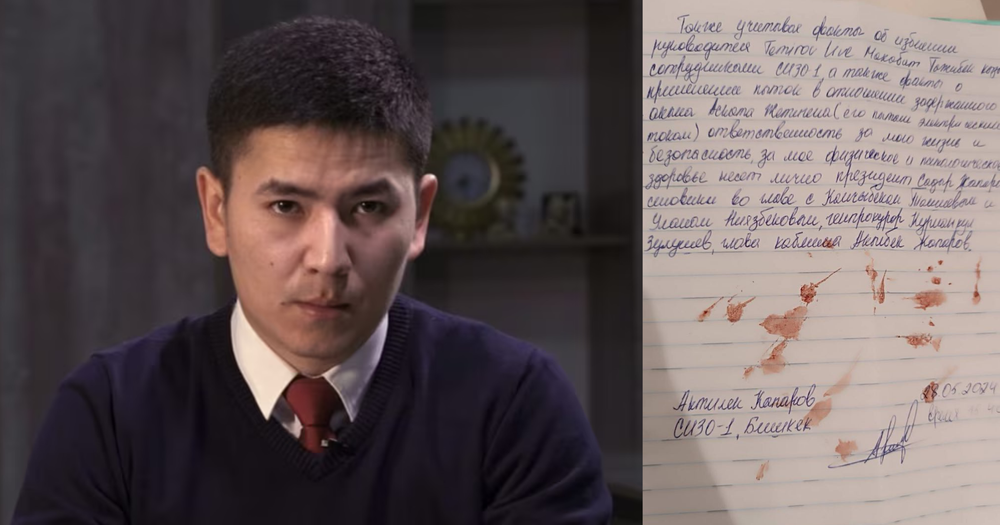 Также учитывая факты об избиении
руководителя Temirov Live Махабат Тажибек кызы
сотрудниками СИЗО-1, а также факты о
применении пыток в отношении задержанного
акына Аската Жетигена (его пытали электрическим
током) ответственность за мою жизнь и
безопасность, за мое физическое и психологическое
здоровье несет лично президент Садыр Жапаров
силовики во главе с Камчыбеком Ташиевым и
Уланом Ниязбековым, генпрокурор Курманкул
Зулушев, глава кабмина Акылбек Жапаров.
Актилек Капаров
СИЗО-1, Бишкек
28.05.2024
время